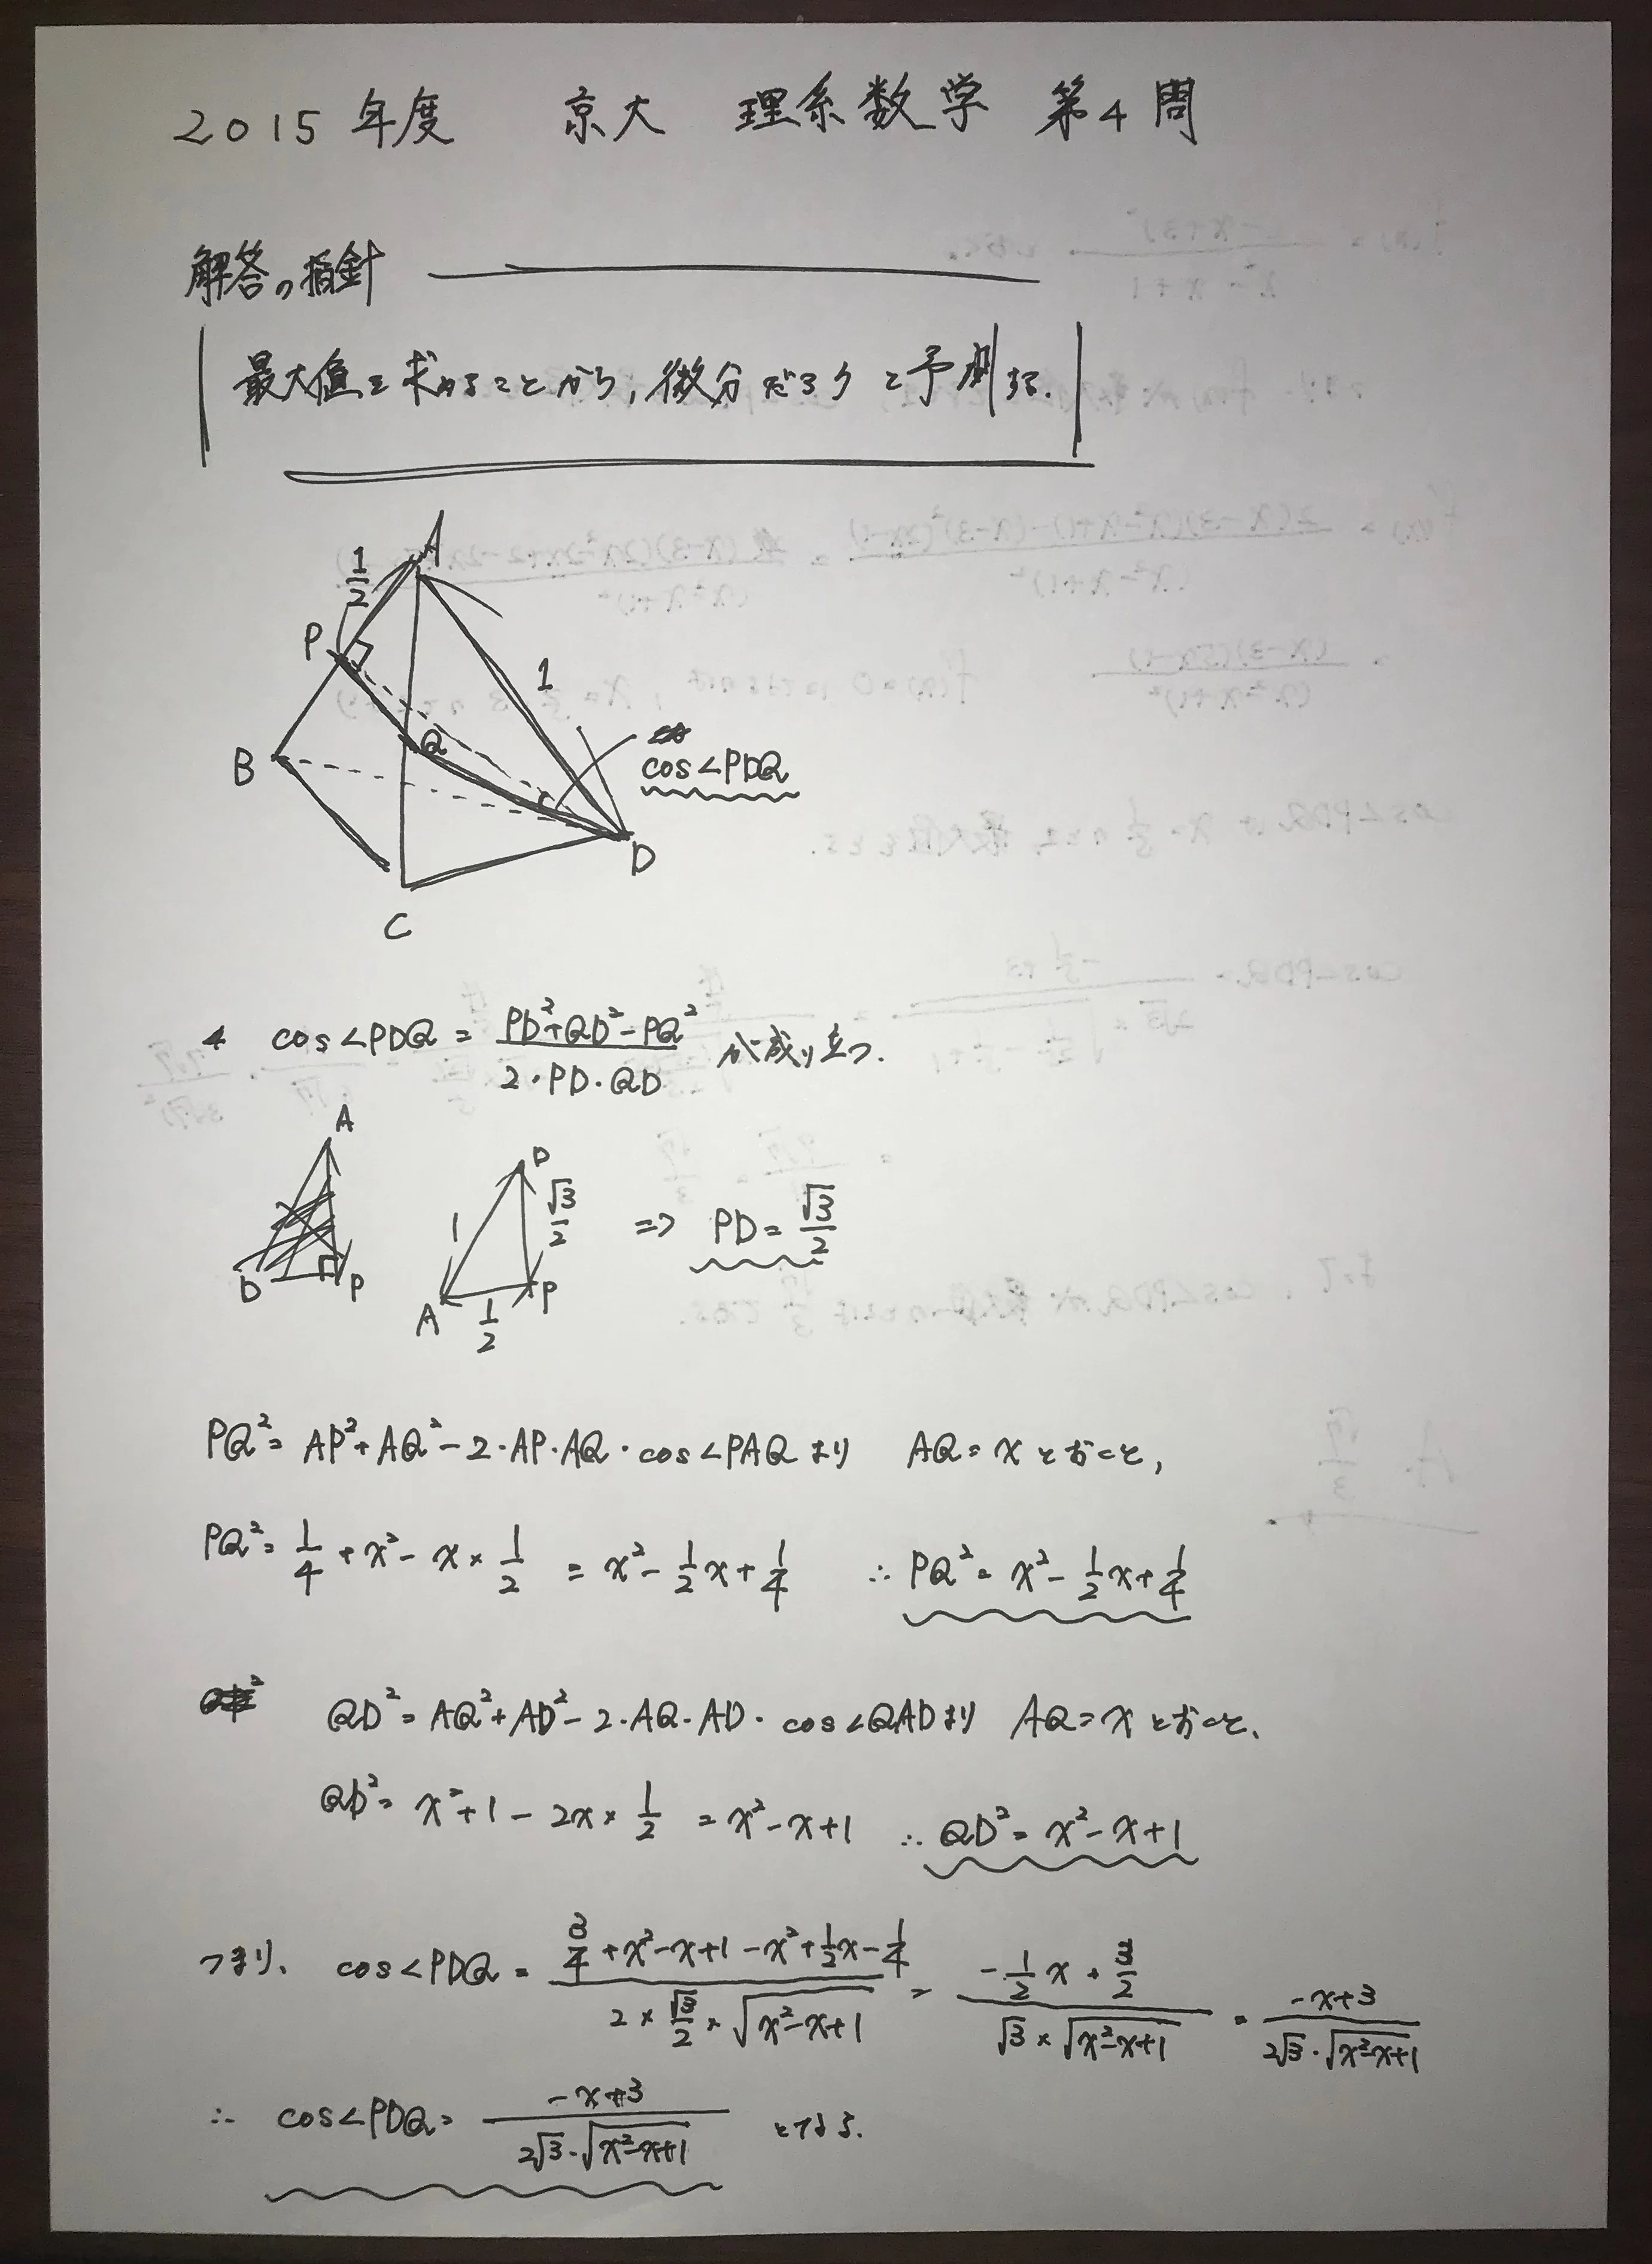 2015年度 京大 理系数学 第4問
解答の指針
最大値を求めることから,微分だろうと予測する.
A
1/2
P
1
Q
B
cos∠PDQ
D
C
cos∠PDQ = (PD²+QD²-PQ²)/(2・PD・QD) が成り立つ.
A
D P
D
1 √3/2 ⇒ PD=√3/2
A 1/2 P
PQ²= AP²+AQ²-2・AP・AQ・cos∠PAQより AQ=xとおくと,
PQ²= 1/4+x²-x×1/2 = x²-1/2x+1/4 ∴PQ²=x²-1/2x+1/4
QD²=AQ²+AD²-2・AQ・AD・cos∠QADより AQ=xとおくと、
QD²= x²+1-2x×1/2 =x²-x+1 ∴QD²=x²-x+1
つまり、cos∠PDQ= (3/4+x²-x+1-x²+1/2x-1/4)/(2×√3/2×√(x²-x+1)) = (-1/2x+3/2)/(√3×√(x²-x+1)) = (-x+3)/(2√3・√(x²-x+1))
∴ cos∠PDQ= (-x+3)/(2√3・√(x²-x+1)) となる.